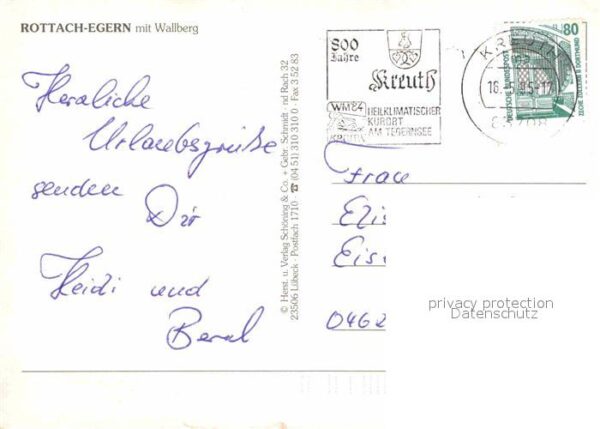 ROTTACH-EGERN mit Wallberg
Herzliche
Urlaubsgrüße
senden
Dir
Heidi und
© Herst. u. Verlag Schöning & Co. + Gebr. Schmidt · nd Rach 32
23506 Lübeck · Postfach 1710 · ☎ (04 51) 310 310 0 · Fax 3 52 83
800
Jahre
Kreuth
WM'84
KREUTH
HEILKLIMATISCHER
KURORT
AM TEGERNSEE
KREUTH
83708
80
DEUTSCHE BUNDESPOST
ZECHE ZOLLERN II DORTMUND
Frau
Eli
Eis
0462
privacy protection
Datenschutz